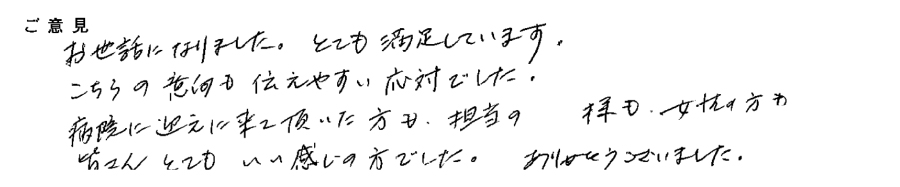 ご意見
お世話になりました。とても満足しています。
こちらの意向も伝えやすい応対でした。
病院に迎えに来て頂いた方も、担当の 様も、女性の方も
皆さんとてもいい感じの方でした。ありがとうございました。